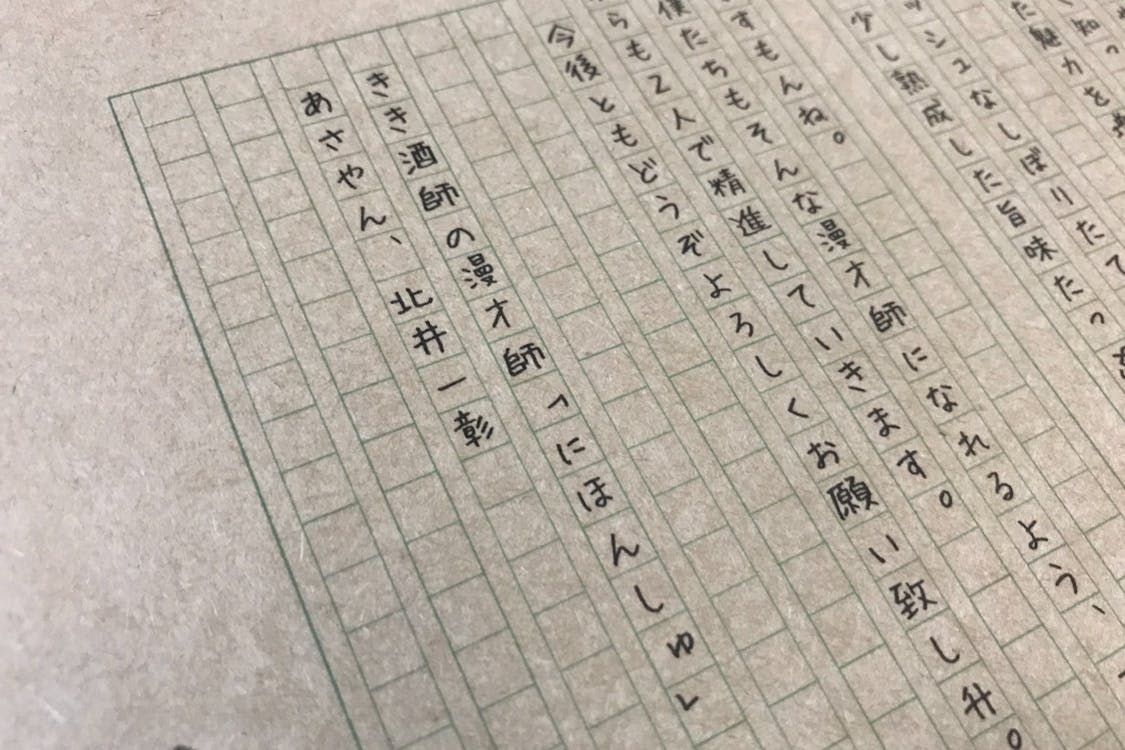 知っ
た魅力を
ッシュなしぼりたて
少し熟成した旨味たっ
すもんね。
僕たちもそんな漫才師になれるよう、
らも2人で精進していきます。
今後ともどうぞよろしくお願い致し升。
きき酒師の漫才師「にほんしゅ」
あさやん、北井一彰